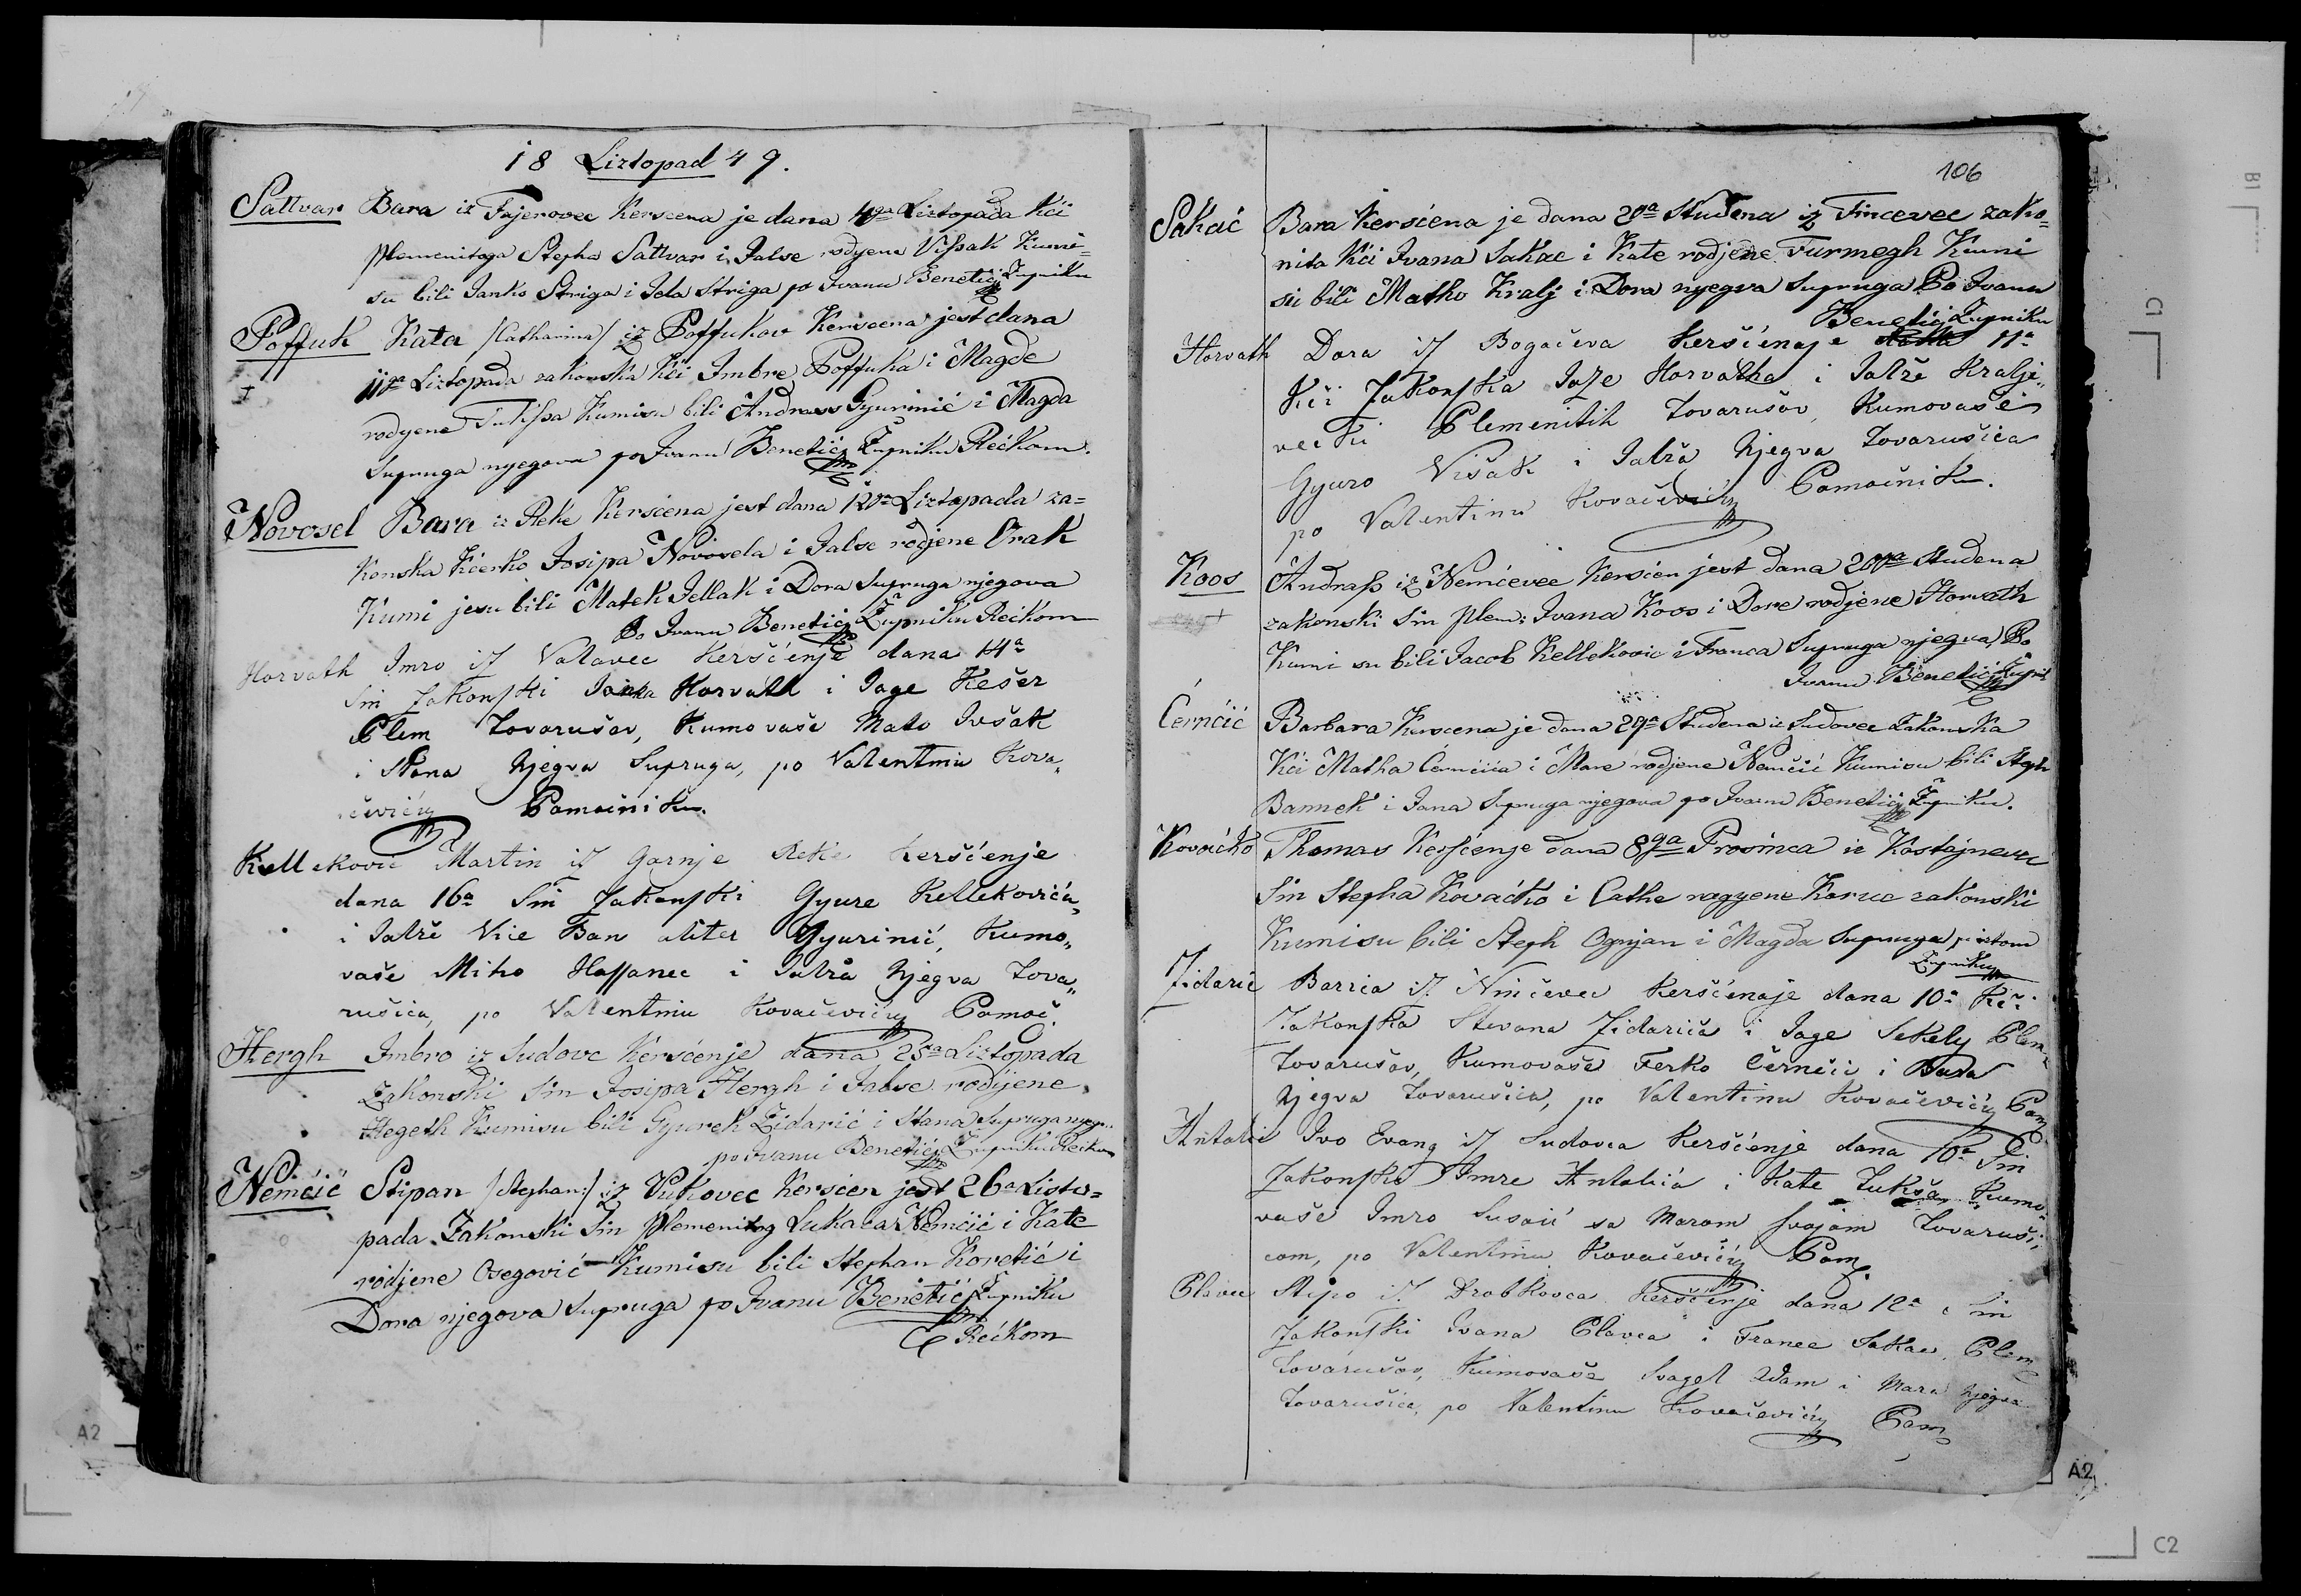 18 Liztopad 49.
Sattvar Bara iz Fajerovec Kerscena je dana 4ga Liztopada Kći
plemenitoga Stepha Sattvar i Jalse rodyene Vissak Kumi
su bili Janko Striga i Jela Striga po Ivanu Benetić Župniku
Poffuk Kata /Catharina/ iz Poffukov Kerscena jest dana
+ 11ga Liztopada zakonska kći Imbre Poffuka i Magde
rodyene Kumisu bili Andrass Gyurinić i Magda
Supruga nyegova po Ivanu Benetić Župniku Rečkom.
Novosel Bara iz Reke Kersćena jest dana 12ga Liztopada za=
Konska Kćerko Josipa Novosela i Jalse rodjene Vrak
Kumi jesu bili Matek Jellak i Dora Supruga njegova
Po Ivanu Benetić Župniku Rečkom
Horvath Imro iz Valavec Keršćenje dana 14a
Sin zakonski Janka Horvath i Jage Kešer
Plem Tovarušov, Kumovaše Mato Ivšak
i Stana Njegva Supruga, po Valentinu Kova„
čevićy Pomoćniku.
Kellekovic Martin iz Gornje Reke Keršćenje
dana 16a Sin Zakonski Gyure Kellekovića„
i Jalže Vice Ban aliter Gyurinić, Kumo„
vaše Miho Hassanec i Jalža Njegva Tova„
rušica, po Valentinu Kovačevićy Pomoć.
Hergh Imbro iz Sudovc Kersćenje dana 25ga Liztopada
Zakonski Sin Josipa Hergh i Jalse rodijene
Hegeth Kumisu bili Gyureh Židarić i Stana Supruga
po Ivanu Benetić Župniku Rečkom
Nemčić Stipan /Stephan:/ iz Vukovec Kersćen jest 26a Listo=
pada Zakonski Sin plemenitog Lukača Nemčić i Kate
rodjene Osegović Kumisu bili Stephan Koretić i
Dora njegova Supruga po Ivanu Benetić Župniku
Rečkom
106
Sakać Bara Kersćena je dana 20a Studena iz Fincevec zako=
nita Kći Ivana Sakac i Kate rodjene Turmegh Kumi
su bili Matho Kralj i Dora njegva Supruga Po Ivanu
Benetić Župniku
Horvath Dora iz Bogačeva Keršćenaje 11a
Kći Zakonska Joze Horvatha i Jalže Kralje„
Plemenitih Tovarušov, Kumovaše
Gyuro Višak i Jalža Njegva Tovarušica
po Valentinu Kovačevićy Pomoćniku.
Koos Andrass iz Nemčevec Kersćen jest dana Studena
+ zakonski Sin plem: Ivana Koos i Dore rodjene Horvath
Kumi su bili Jacob Kellekovic i Franca Supruga njegva Po
Ivanu Benetić
Černčić Barbara Kerscena je dana 29a Studena iz Sudovec Zakonska
Kći Matha Cernčića i Mare rodjene Nemčić Kumisu bili Steph
Bannek i Jana Supruga njegova po Ivanu Benetić Župniku.
Kovaćko Thomas Kersćenje dana 8ga Prosinca iz Kostajnevec
Sin Stepha Kovaćko i Cathe ragyene Koruc zakonski
Kumisu bili Steph Ognjan i Magda Supruga
Župniku
Zidarić Barica iz Ninčevec Keršćenaje dana 10a Kći
Zakonska Stevana Zidariča i Jage Sekely Plem
Tovarušov, Kumovaše Ferko Černčić i Bara
Njegva Tovarušica, po Valentinu Kovačevićy Pom
Antolić Ivo Evang iz Sudovca Keršćenje dana 10a Sin
Zakonski Imre Antolića i Kate Lukša Kumo„
vaše Imro Susaić sa Marom Svojom Tovaruši„
com, po Valentinu Kovačevićy Pom
Plavec Stipo iz Drobkovca Keršćenje dana 12a Sin
Zakonski Ivana Plavca i France Sakac, Plem
Tovarušov, Kumovaše Svagel Adam i Mara Njegva
Tovarušica, po Valentinu Kovačevićy Pom
B1
C1
A2
A2
C2